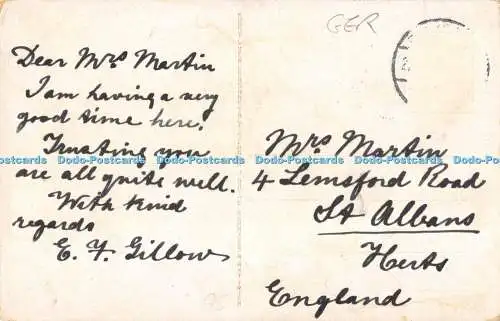 GER
Dear Mrs Martin
I am having a very
good time here.
Trusting you
are all quite well.
With kind
regards
E. F. Gillow
Mrs Martin
4 Lemsford Road
St Albans
Herts
England
Dodo-Postcards Dodo-Postcards Dodo-Postcards Dodo-Postcards Dodo-Postcards Dodo-Postcards